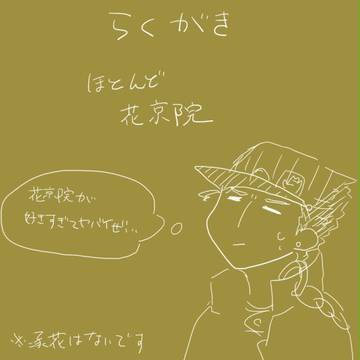 らくがき
ほとんど
花京院
花京院が
好きすぎてヤバイぜ...
※承花はないです